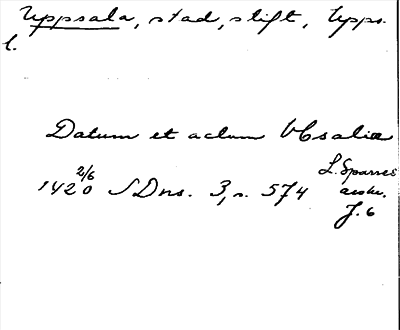 Uppsala, stad, stift, Upps.
l.
Datum et actum Vbsalie
1420 2/6 SDns. 3, s. 574
L. Sparres
avskr.
J. 6